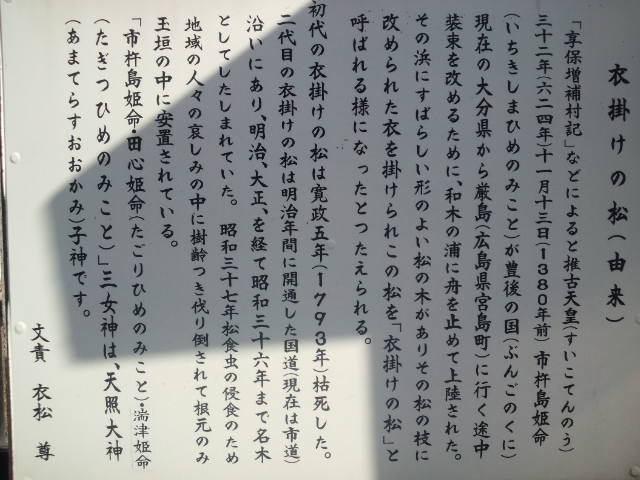 衣掛けの松(由来)
「享保増補村記」などによると推古天皇(すいこてんのう)
三十二年(六二四年)十一月十三日(1380年前)市杵島姫命
(いちきしまひめのみこと)が豊後の国(ぶんごのくに)
現在の大分県から厳島(広島県宮島町)に行く途中
装束を改めるために、和木の浦に舟を止めて上陸された。
その浜にすばらしい形のよい松の木がありその松の枝に
改められた衣を掛けられこの松を「衣掛けの松」と
呼ばれる様になったとつたえられる。
初代の衣掛けの松は寛政五年(1793年)枯死した。
二代目の衣掛けの松は明治年間に開通した国道(現在は市道)
沿いにあり、明治、大正、を経て昭和三十六年まで名木
としてしたしまれていた。昭和三十七年松食虫の侵食のため
地域の人々の哀しみの中に樹齢つき伐り倒されて根元のみ
玉垣の中に安置されている。
「市杵島姫命・田心姫命(たごりひめのみこと)・湍津姫命
(たぎつひめのみこと)」三女神は、天照大神
(あまてらすおおかみ)子神です。
文責 衣松 尊